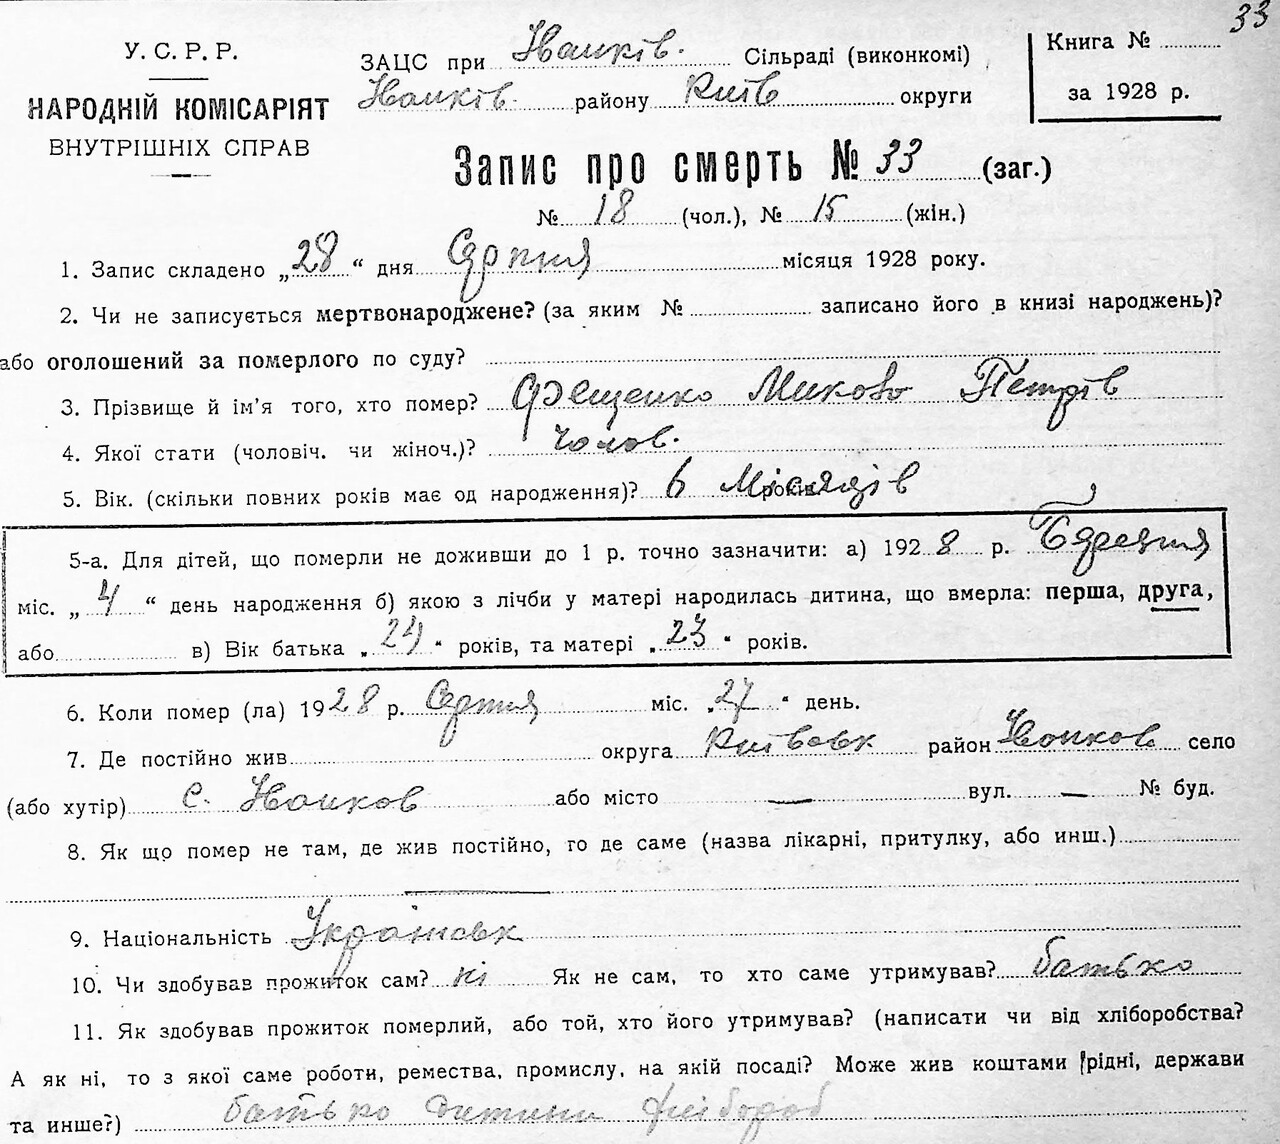 33
У. С. Р. Р.
НАРОДНІЙ КОМІСАРІЯТ
ВНУТРІШНІХ СПРАВ
ЗАЦС при Іванків. Сільраді (виконкомі)
Іванків. району Київ округи
Книга №
за 1928 р.
Запис про смерть № 33 (заг.)
№ 18 (чол.), № 15 (жін.)
1. Запис складено „28“ дня Серпня місяця 1928 року.
2. Чи не записується мертвонароджене? (за яким № записано його в книзі народжень)?
або оголошений за померлого по суду?
3. Прізвище й ім'я того, хто помер? Фещенко Микола Петрів
4. Якої стати (чоловіч. чи жіноч.)? Чолов.
5. Вік. (скільки повних років має од народження)? 6 Місяців
5-а. Для дітей, що померли не доживши до 1 р. точно зазначити: а) 1928 р. Березня
міс. „4“ день народження б) якою з лічби у матері народилась дитина, що вмерла: перша, друга,
або в) Вік батька „24“ років, та матері „23“ років.
6. Коли помер (ла) 1928 р. Серпня міс. „27“ день.
7. Де постійно жив округа Київськ район Іванков село
(або хутір) с. Іванков або місто — вул. — № буд.
8. Як що помер не там, де жив постійно, то де саме (назва лікарні, притулку, або инш.)
9. Національність Українськ
10. Чи здобував прожиток сам? ні Як не сам, то хто саме утримував? батько
11. Як здобував прожиток померлий, або той, хто його утримував? (написати чи від хліборобства?
А як ні, то з якої саме роботи, ремества, промислу, на якій посаді? Може жив коштами рідні, держави
та инше?) батько дитини хлібороб